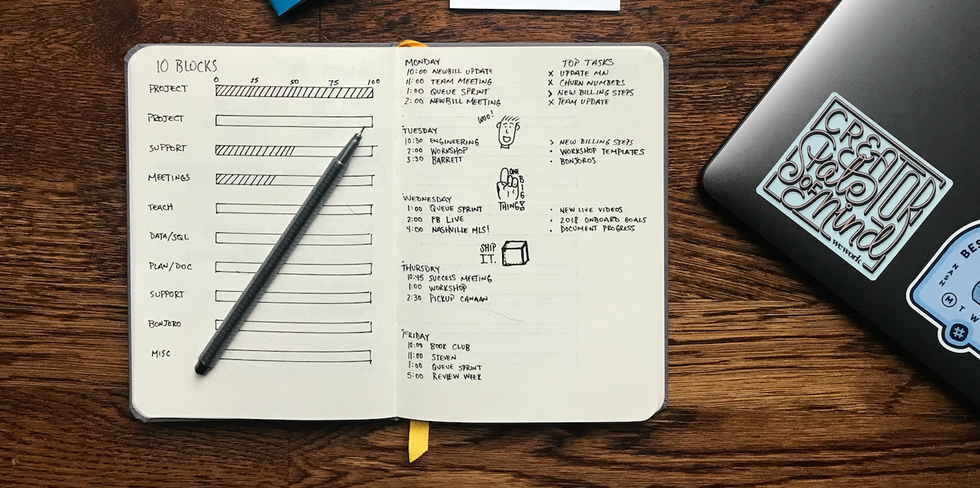 10 BLOCKS
0 25 50 75 100
PROJECT
PROJECT
SUPPORT
MEETINGS
TEACH
DATA/SQL
PLAN/DOC
SUPPORT
BONJORO
MISC
MONDAY
10:00 NEWBILL UPDATE
11:00 TEAM MEETING
1:00 QUEUE SPRINT
2:00 NEWBILL MEETING
TOP TASKS
X UPDATE MN
X CHURN NUMBERS
> NEW BILLING STEPS
X TEAM UPDATE
WOO!
TUESDAY
10:30 ENGINEERING
2:00 WORKSHOP
3:30 BARRETT
> NEW BILLING STEPS
• WORKSHOP TEMPLATES
• BONJOROS
ONE
BIG
THING
WEDNESDAY
1:00 QUEUE SPRINT
2:00 PB LIVE
4:00 NASHVILLE MLS!
• NEW LIVE VIDEOS
• 2018 ONBOARD GOALS
• DOCUMENT PROGRESS
SHIP
I.T.
THURSDAY
10:45 SUCCESS MEETING
1:00 WORKSHOP
2:30 PICKUP CANAAN
FRIDAY
10:00 BOOK CLUB
11:00 STEVEN
1:00 QUEUE SPRINT
5:00 REVIEW WEEK
CREATOR
State
OF
Mind
wework
BES
NASH
M T W
#